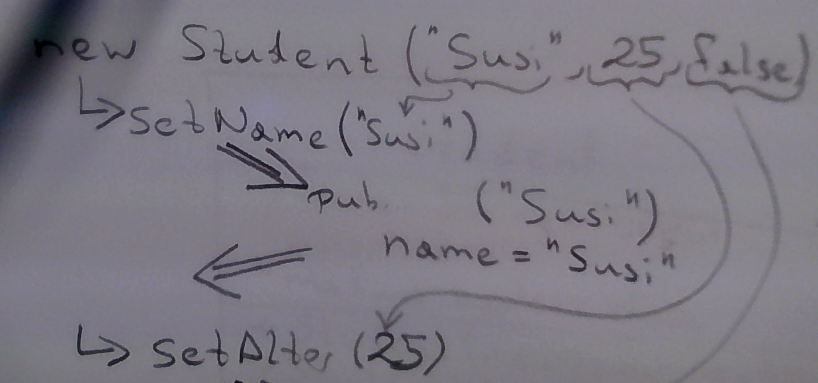 new Student ("Susi", 25, false)
↳ setName("Susi")
pub. ("Susi")
name = "Susi"
↳ setAlter (25)